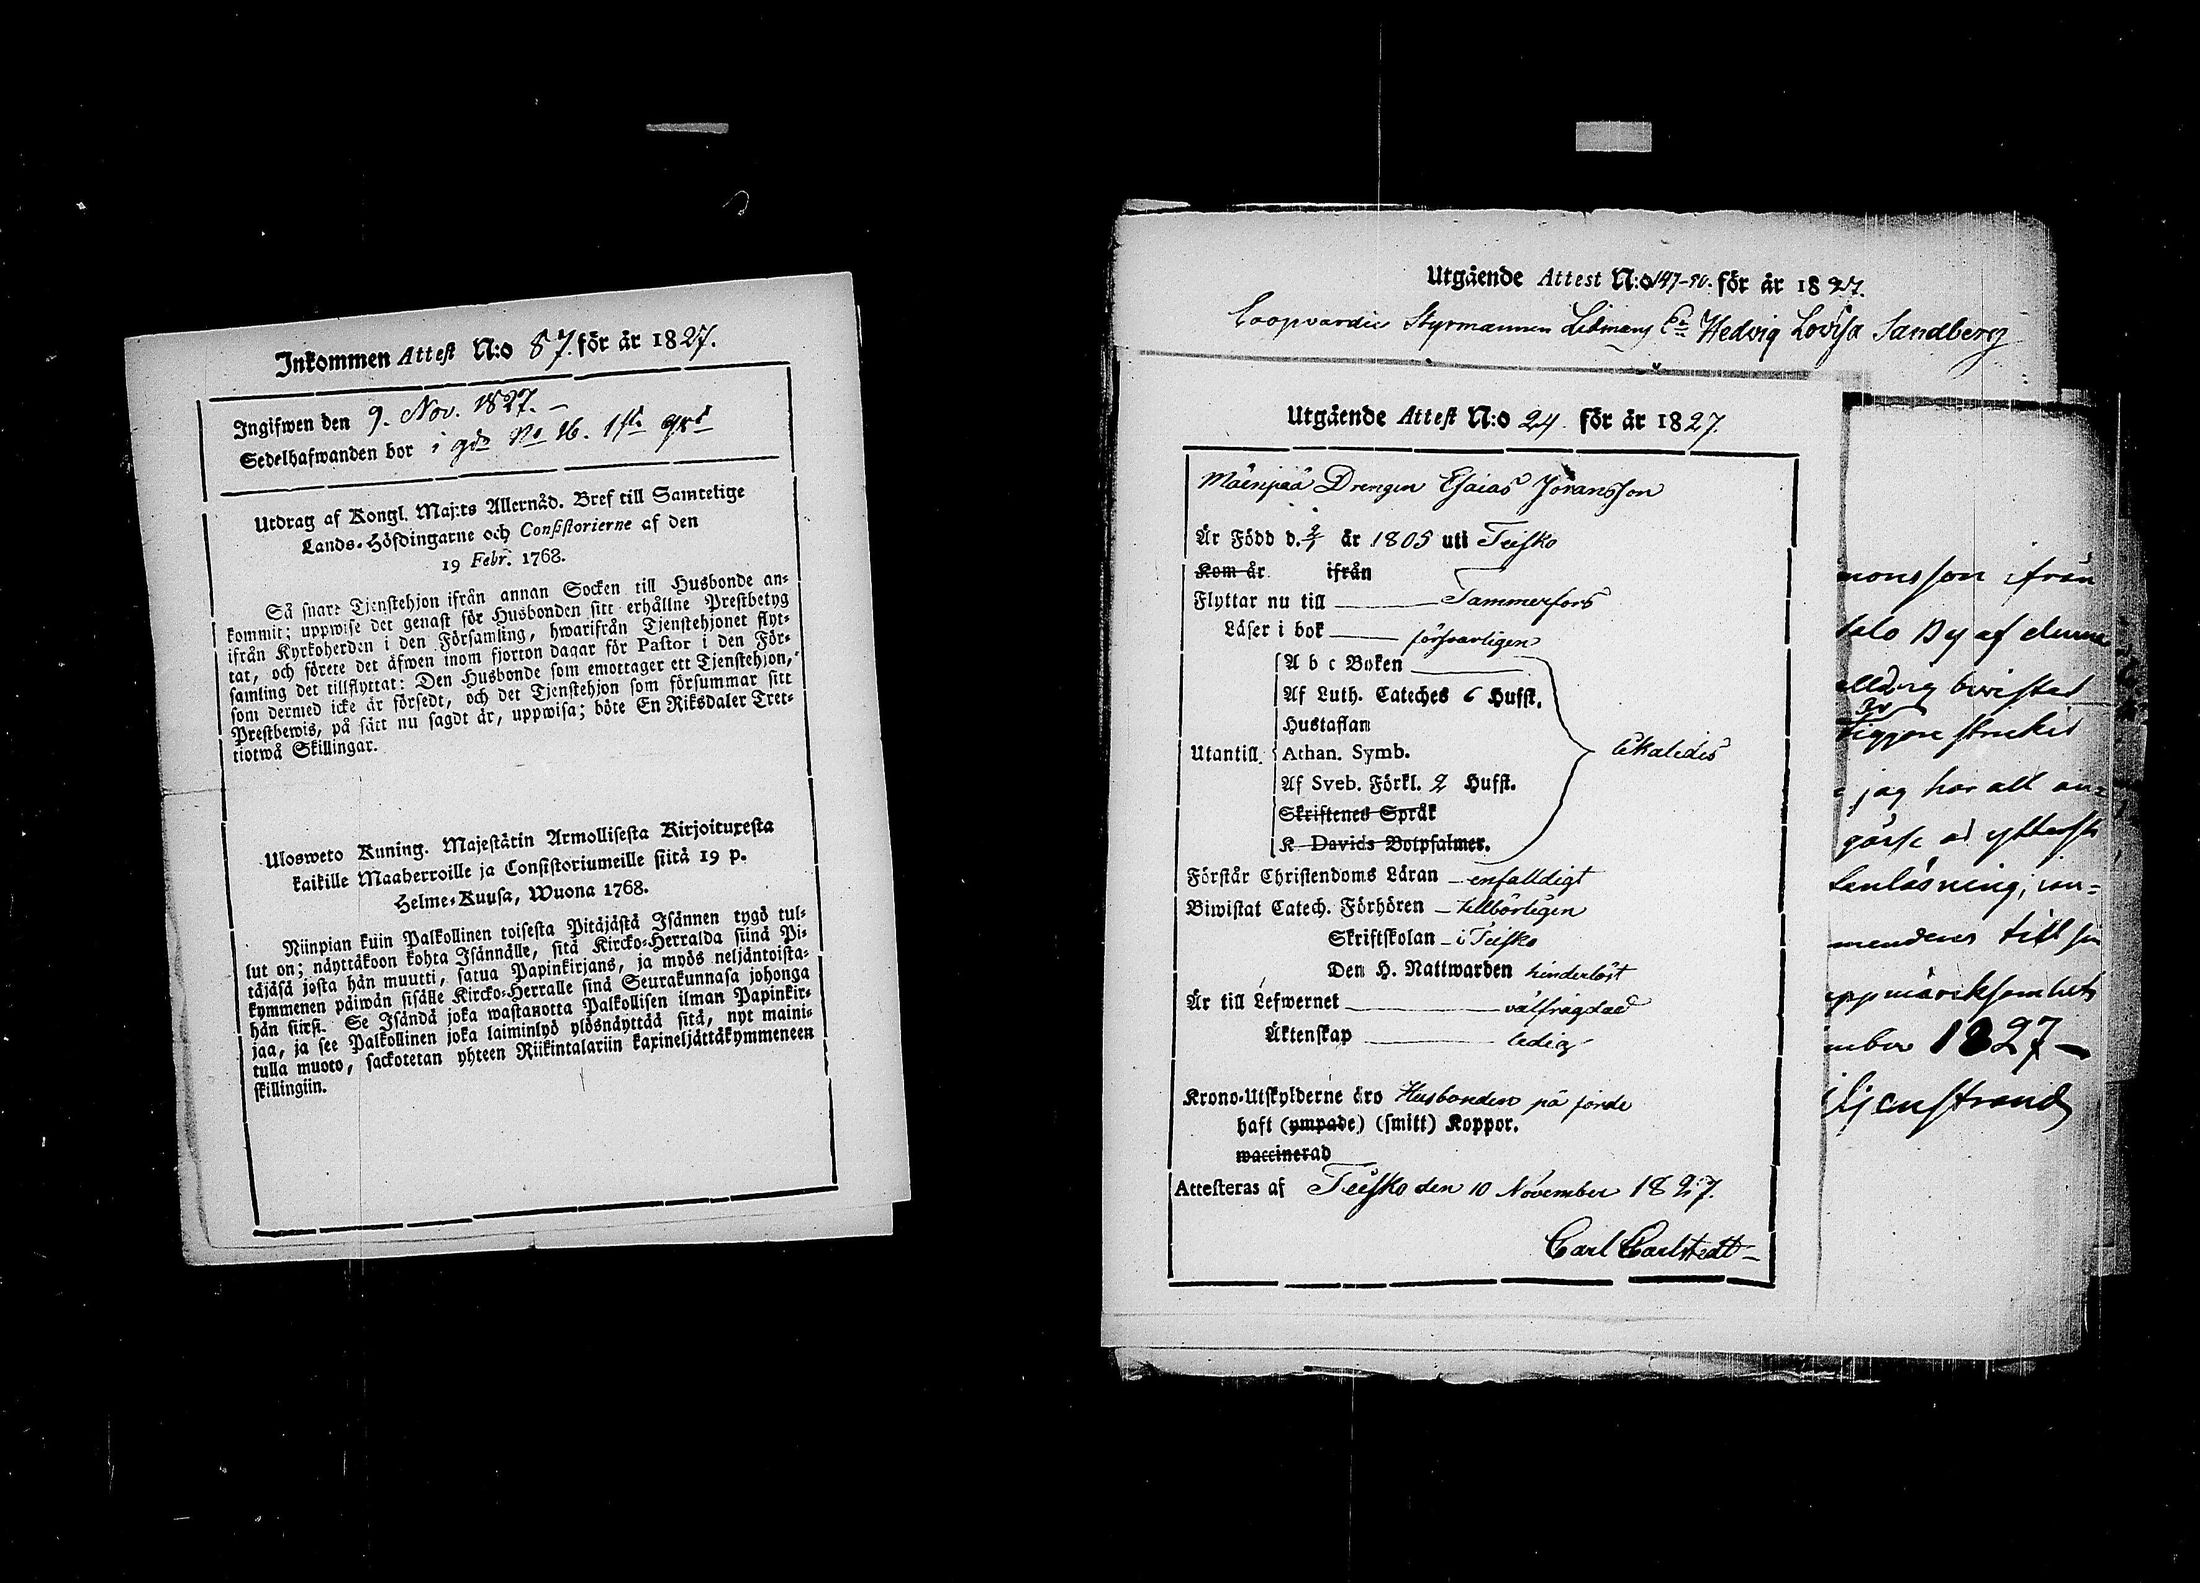 Inkommen Attest N:o 87. för år 1827.
Ingifwen den 9. Nov. 1827. –
Sedelhafwanden bor i gdn No 16. 1sta qrt
Utdrag af Kongl. Maj:ts Allernåd. Bref till Samtelige
Lands-Höfdingarne och Consistorierne af den
19 Febr. 1768.
Så snart Tjenstehjon ifrån annan Socken till Husbonde an-
kommit; uppwise det genast för Husbonden sitt erhållne Prestbetyg
ifrån Kyrkoherden i den Församling, hwarifrån Tjenstehjonet flyt-
tat, och förete det äfwen inom fjorton dagar för Pastor i den För-
samling det tillflyttat: Den Husbonde som emottager ett Tjenstehjon,
som dermed icke är försedt, och det Tjenstehjon som försummar sitt
Prestbewis, på sätt nu sagdt är, uppwisa; böte En Riksdaler Tret-
tiotwå Skillingar.
Ulosweto Kuning. Majestätin Armollisesta Kirjoituxesta
kaikille Maaherroille ja Consistoriumeille siitä 19 p.
Helme-Kuusa, Wuona 1768.
Niinpian kuin Palkollinen toisesta Pitäjästä Isännen tygö tul-
lut on; näyttäkoon kohta Isännälle, sitä Kircko-Herralda siinä Pi-
täjäsä josta hän muutti, saatua Papinkirjans, ja myös neljäntoista-
kymmenen päiwän sisälle Kircko-Herralle sinä Seurakunnasa johonga
hän siirsi. Se Isändä joka wastanotta Palkollisen ilman Papinkir-
jaa, ja see Palkollinen joka laiminlyö ylösnäyttää sitä, nyt maini-
tulla muoto, sackotetan yhteen Riikintalariin kaxineljättäkymmeneen
skillingiin.
Utgående Attest N:o 147-50. för år 1827.
Coopvardie Styrmannen Lidmans Ea Hedvig Lovisa Sandberg
Utgående Attest N:o 24 för år 1827.
Mäenpää Drengen Esaias Joransson
Är Född d. 2/1 år 1805 uti Teisko
Kom år ifrån
Flyttar nu till Tammerfors
Läser i bok försvarligen
A b c Boken
Af Luth. Cateches 6 Hufst.
Hustaflan
Utantill Athan. Symb.
Af Sveb. Förkl. 2 Hufst.
Skriftenes Språk
K Davids Botpsalmer.
Förstår Christendoms Läran enfalldigt
Biwistat Catech. Förhören tillbörligen
Skriftskolan i Teisko
Den H. Nattwarden hinderlöst
Är till Lefwernet välfrägdad
Äktenskap ledig
Krono-Utskylderne äro Husbonden på förde
haft (ympade) (smitt) Koppor.
waccinerad
Attesteras af Teisko den 10 November 1827.
Carl Carlstedt
monsson ifrån
salo By af denna
bevistad
jag har all
mendeves till sin
uppmärcksamhet
mber 1827 –
iljenstrand